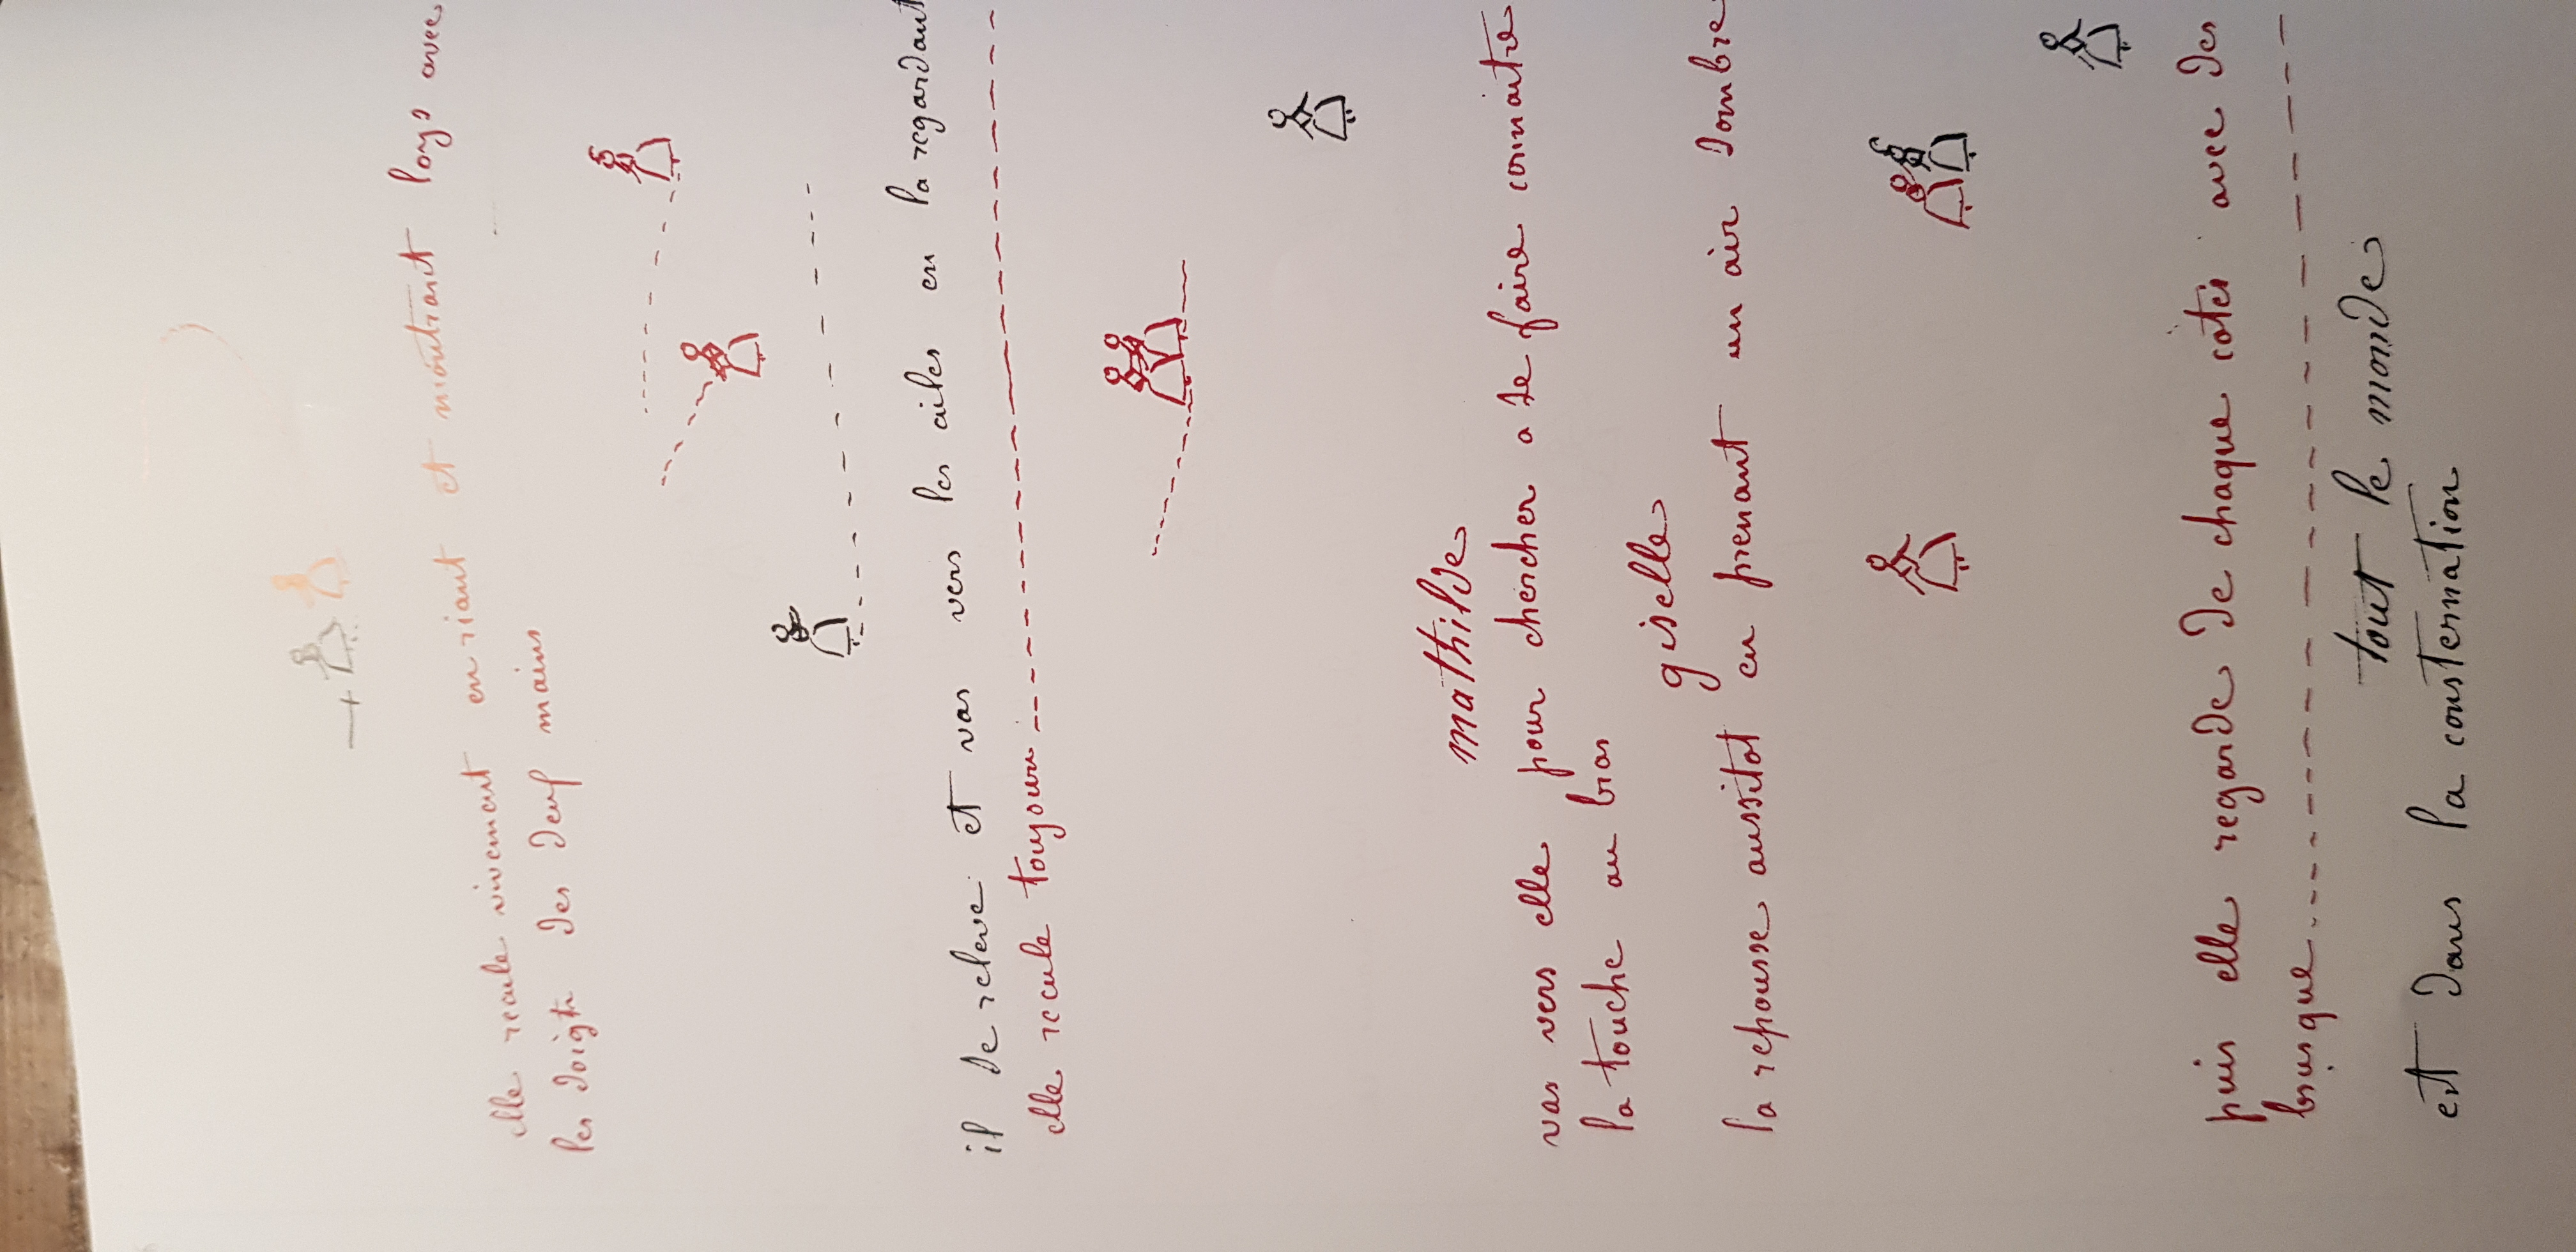 elle recule vivement en riant et montrant loys avec
les doigts des deux mains
il se releve et vas vers les ailes en la regardant
elle recule toujours
mathilde
vas vers elle pour chercher a se faire connaitre
la touche au bras
giselle
la repousse aussitot en prenant un air sombre
puis elle regarde de chaque cotés avec des
brusque
tout le monde
est dans la consternation